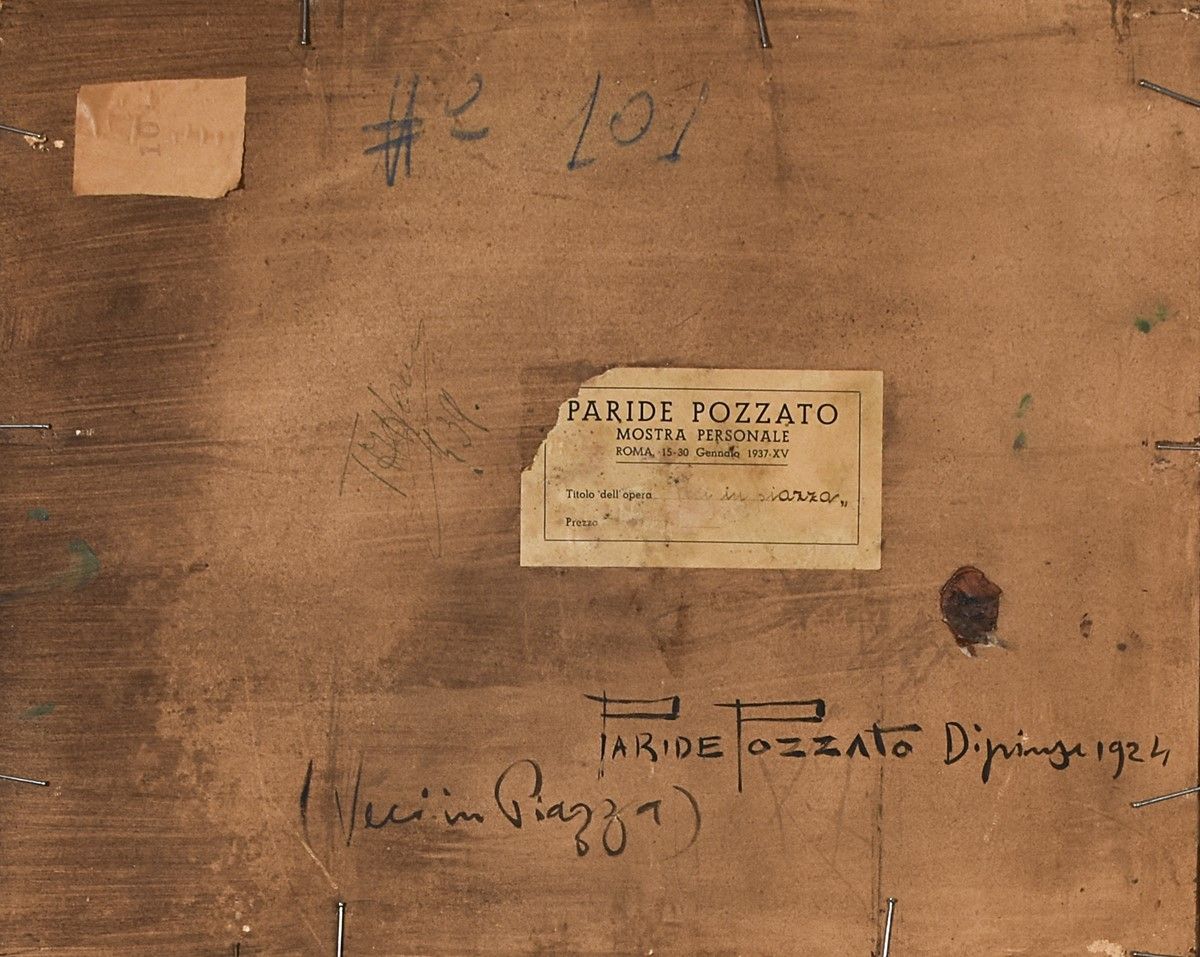 #2 101
10
PARIDE POZZATO
MOSTRA PERSONALE
ROMA, 15-30 Gennaio 1937-XV
Titolo dell'opera in piazza„
Prezzo
PARIDE POZZATO Dipinse 1924
(Veci in Piazza)